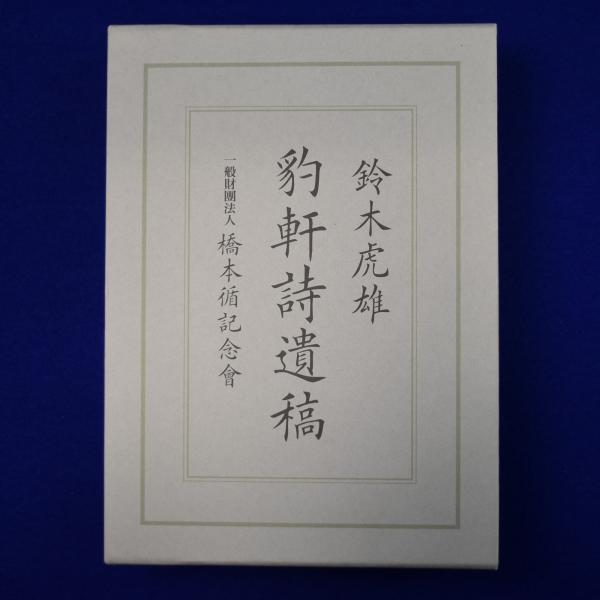 鈴木虎雄
豹軒詩遺稿
一般財團法人 橋本循記念會